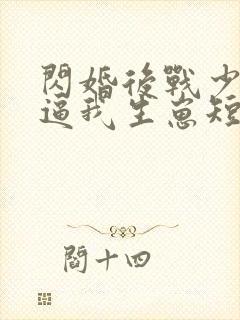 閃婚後戰少
逼我生崽短
閻十四